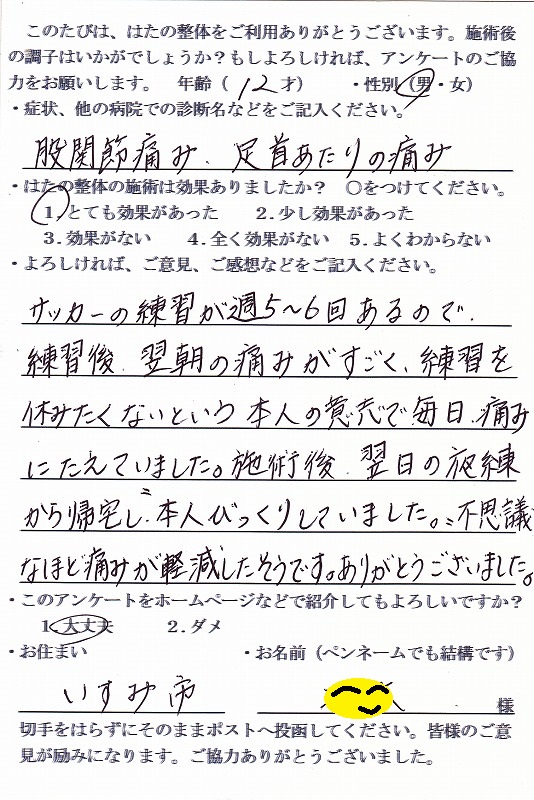 このたびは、はたの整体をご利用ありがとうございます。施術後
の調子はいかがでしょうか？もしよろしければ、アンケートのご協
力をお願いします。 年齢（ 12 才） ・性別（男・女）
・症状、他の病院での診断名などをご記入ください。
股関節痛み、足首あたりの痛み
・はたの整体の施術は効果ありましたか？ ○をつけてください。
1.とても効果があった 2.少し効果があった
3.効果がない 4.全く効果がない 5.よくわからない
・よろしければ、ご意見、ご感想などをご記入ください。
サッカーの練習が週5～6回あるので、
練習後、翌朝の痛みがすごく、練習を
休みたくないという本人の意志で毎日、痛み
にたえていました。施術後、翌日の夜練
から帰宅し、本人びっくりしていました。〝不思議
なほど痛みが軽減したそうです。ありがとうございました。
・このアンケートをホームページなどで紹介してもよろしいですか？
1.大丈夫 2.ダメ
・お住まい ・お名前（ペンネームでも結構です）
いすみ市 様
切手をはらずにそのままポストへ投函してください。皆様のご意
見が励みになります。ご協力ありがとうございました。